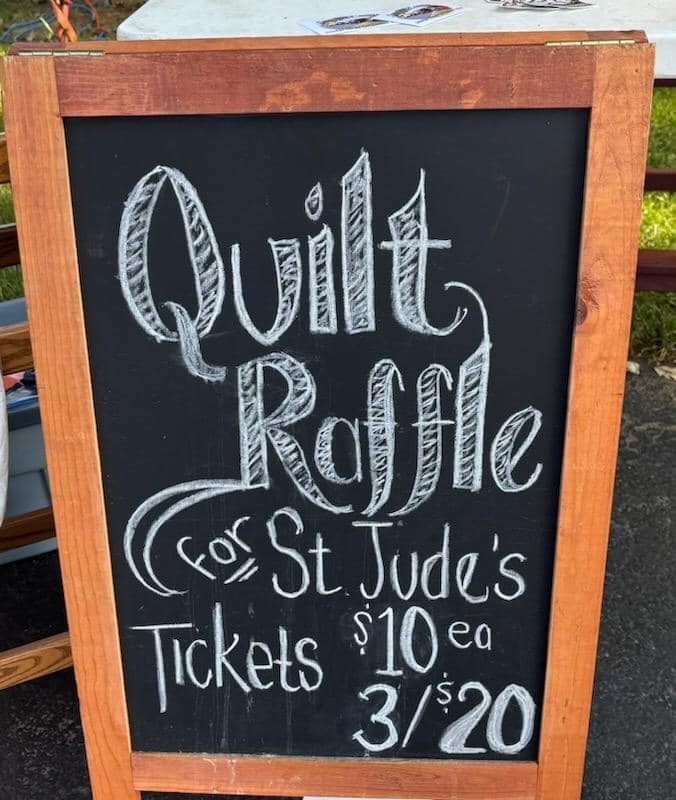 Quilt
Raffle
For St Jude's
Tickets $10 ea
3/$20